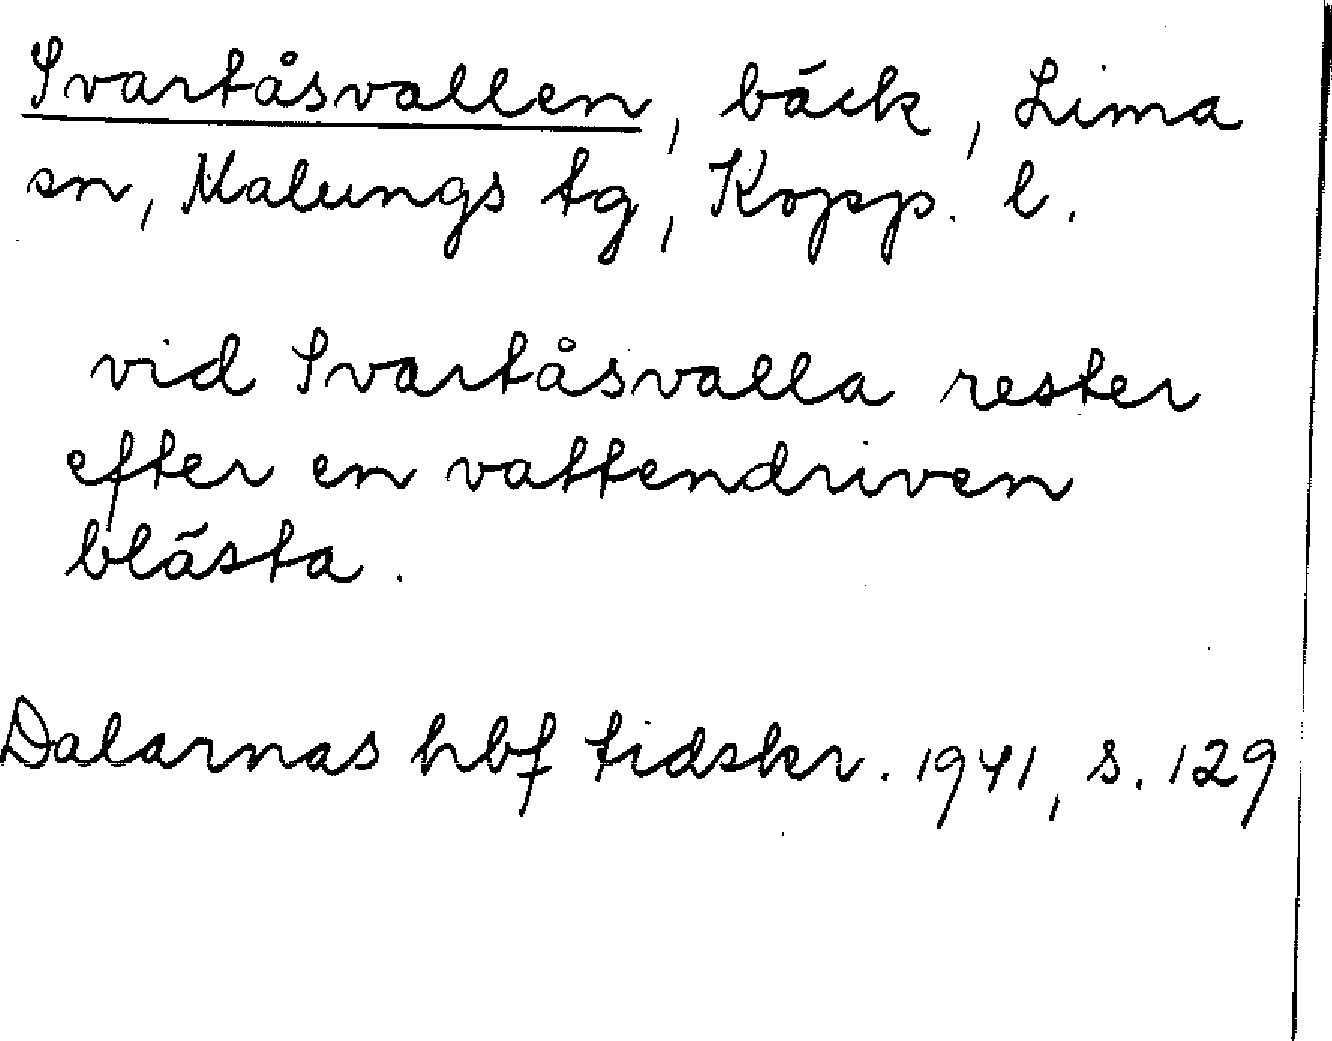 Svartåsvallen, bäck, Lima
sn, Malungs tg, Kopp. l.
vid Svartåsvalla rester
efter en vattendriven
blästa.
Dalarnas hbf tidskr. 1941, s. 129